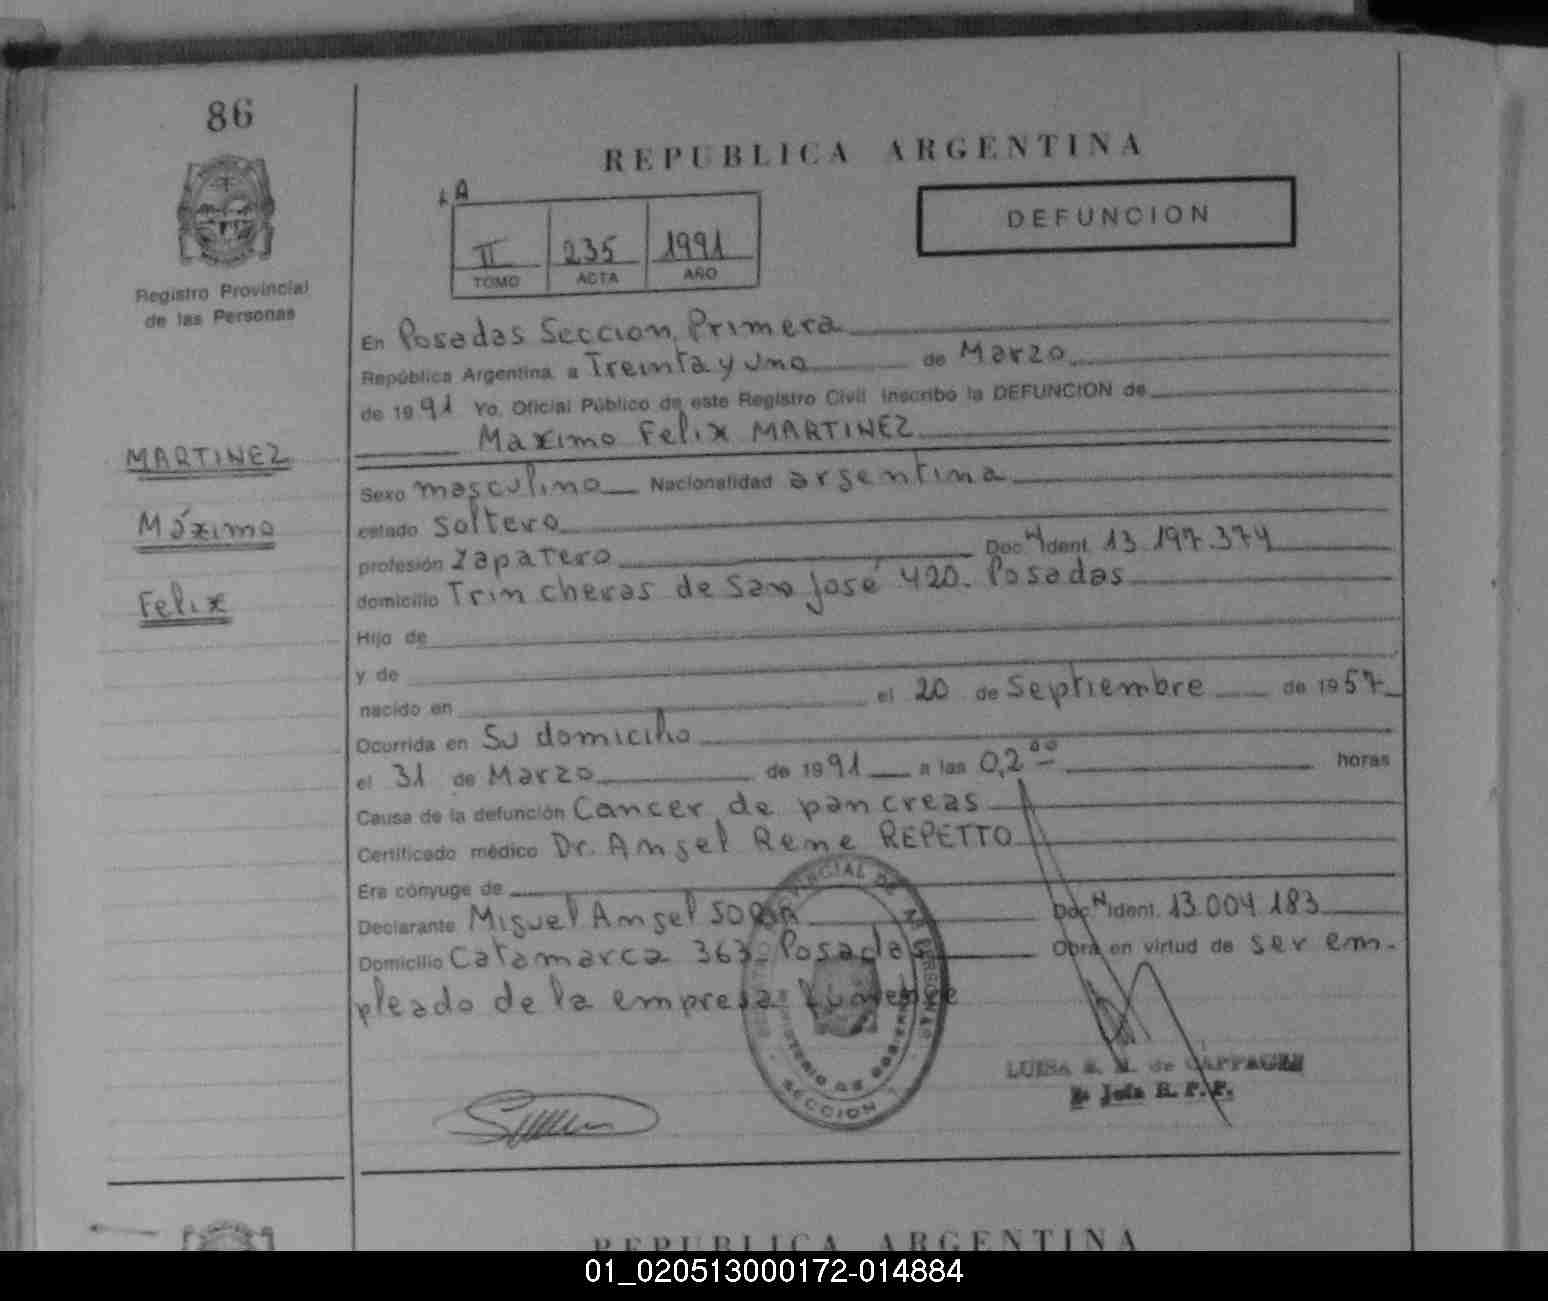 86
REPUBLICA ARGENTINA
Registro Provincial
de las Personas
A
II 235 1991
TOMO ACTA AÑO
DEFUNCION
En Posadas Seccion Primera
República Argentina a Treinta y uno de Marzo
de 1991 Yo, Oficial Público de este Registro Civil inscribo la DEFUNCION de
Maximo Felix MARTINEZ
MARTINEZ
Máximo
Felix
Sexo masculino Nacionalidad argentina
estado soltero
profesión zapatero Doc. N Ident. 13.197.374
domicilio Trincheras de San José 420. Posadas
Hijo de
y de
nacido en el 20 de Septiembre de 1957
Ocurrida en Su domicilio
el 31 de Marzo de 1991 a las 0,2 00 horas
Causa de la defunción Cancer de pancreas
Certificado médico Dr. Angel Rene REPETTO
Era cónyuge de
Declarante Miguel Angel SORIA Doc. N Ident. 13.004.183
Domicilio Catamarca 363. Posadas Obra en virtud de ser em-
pleado de la empresa funebre
SECCION
LUISA de
2º Jefa R. P. P.
REPUBLICA ARGENTINA
01_020513000172-014884